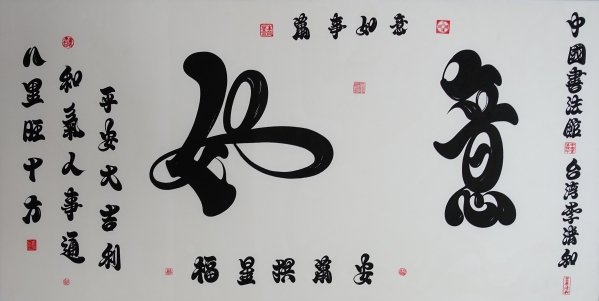 中國書法館 台湾李清和
萬事如意
如意
福星拱萬安
平安大吉利
和氣人事通
八里旺十方